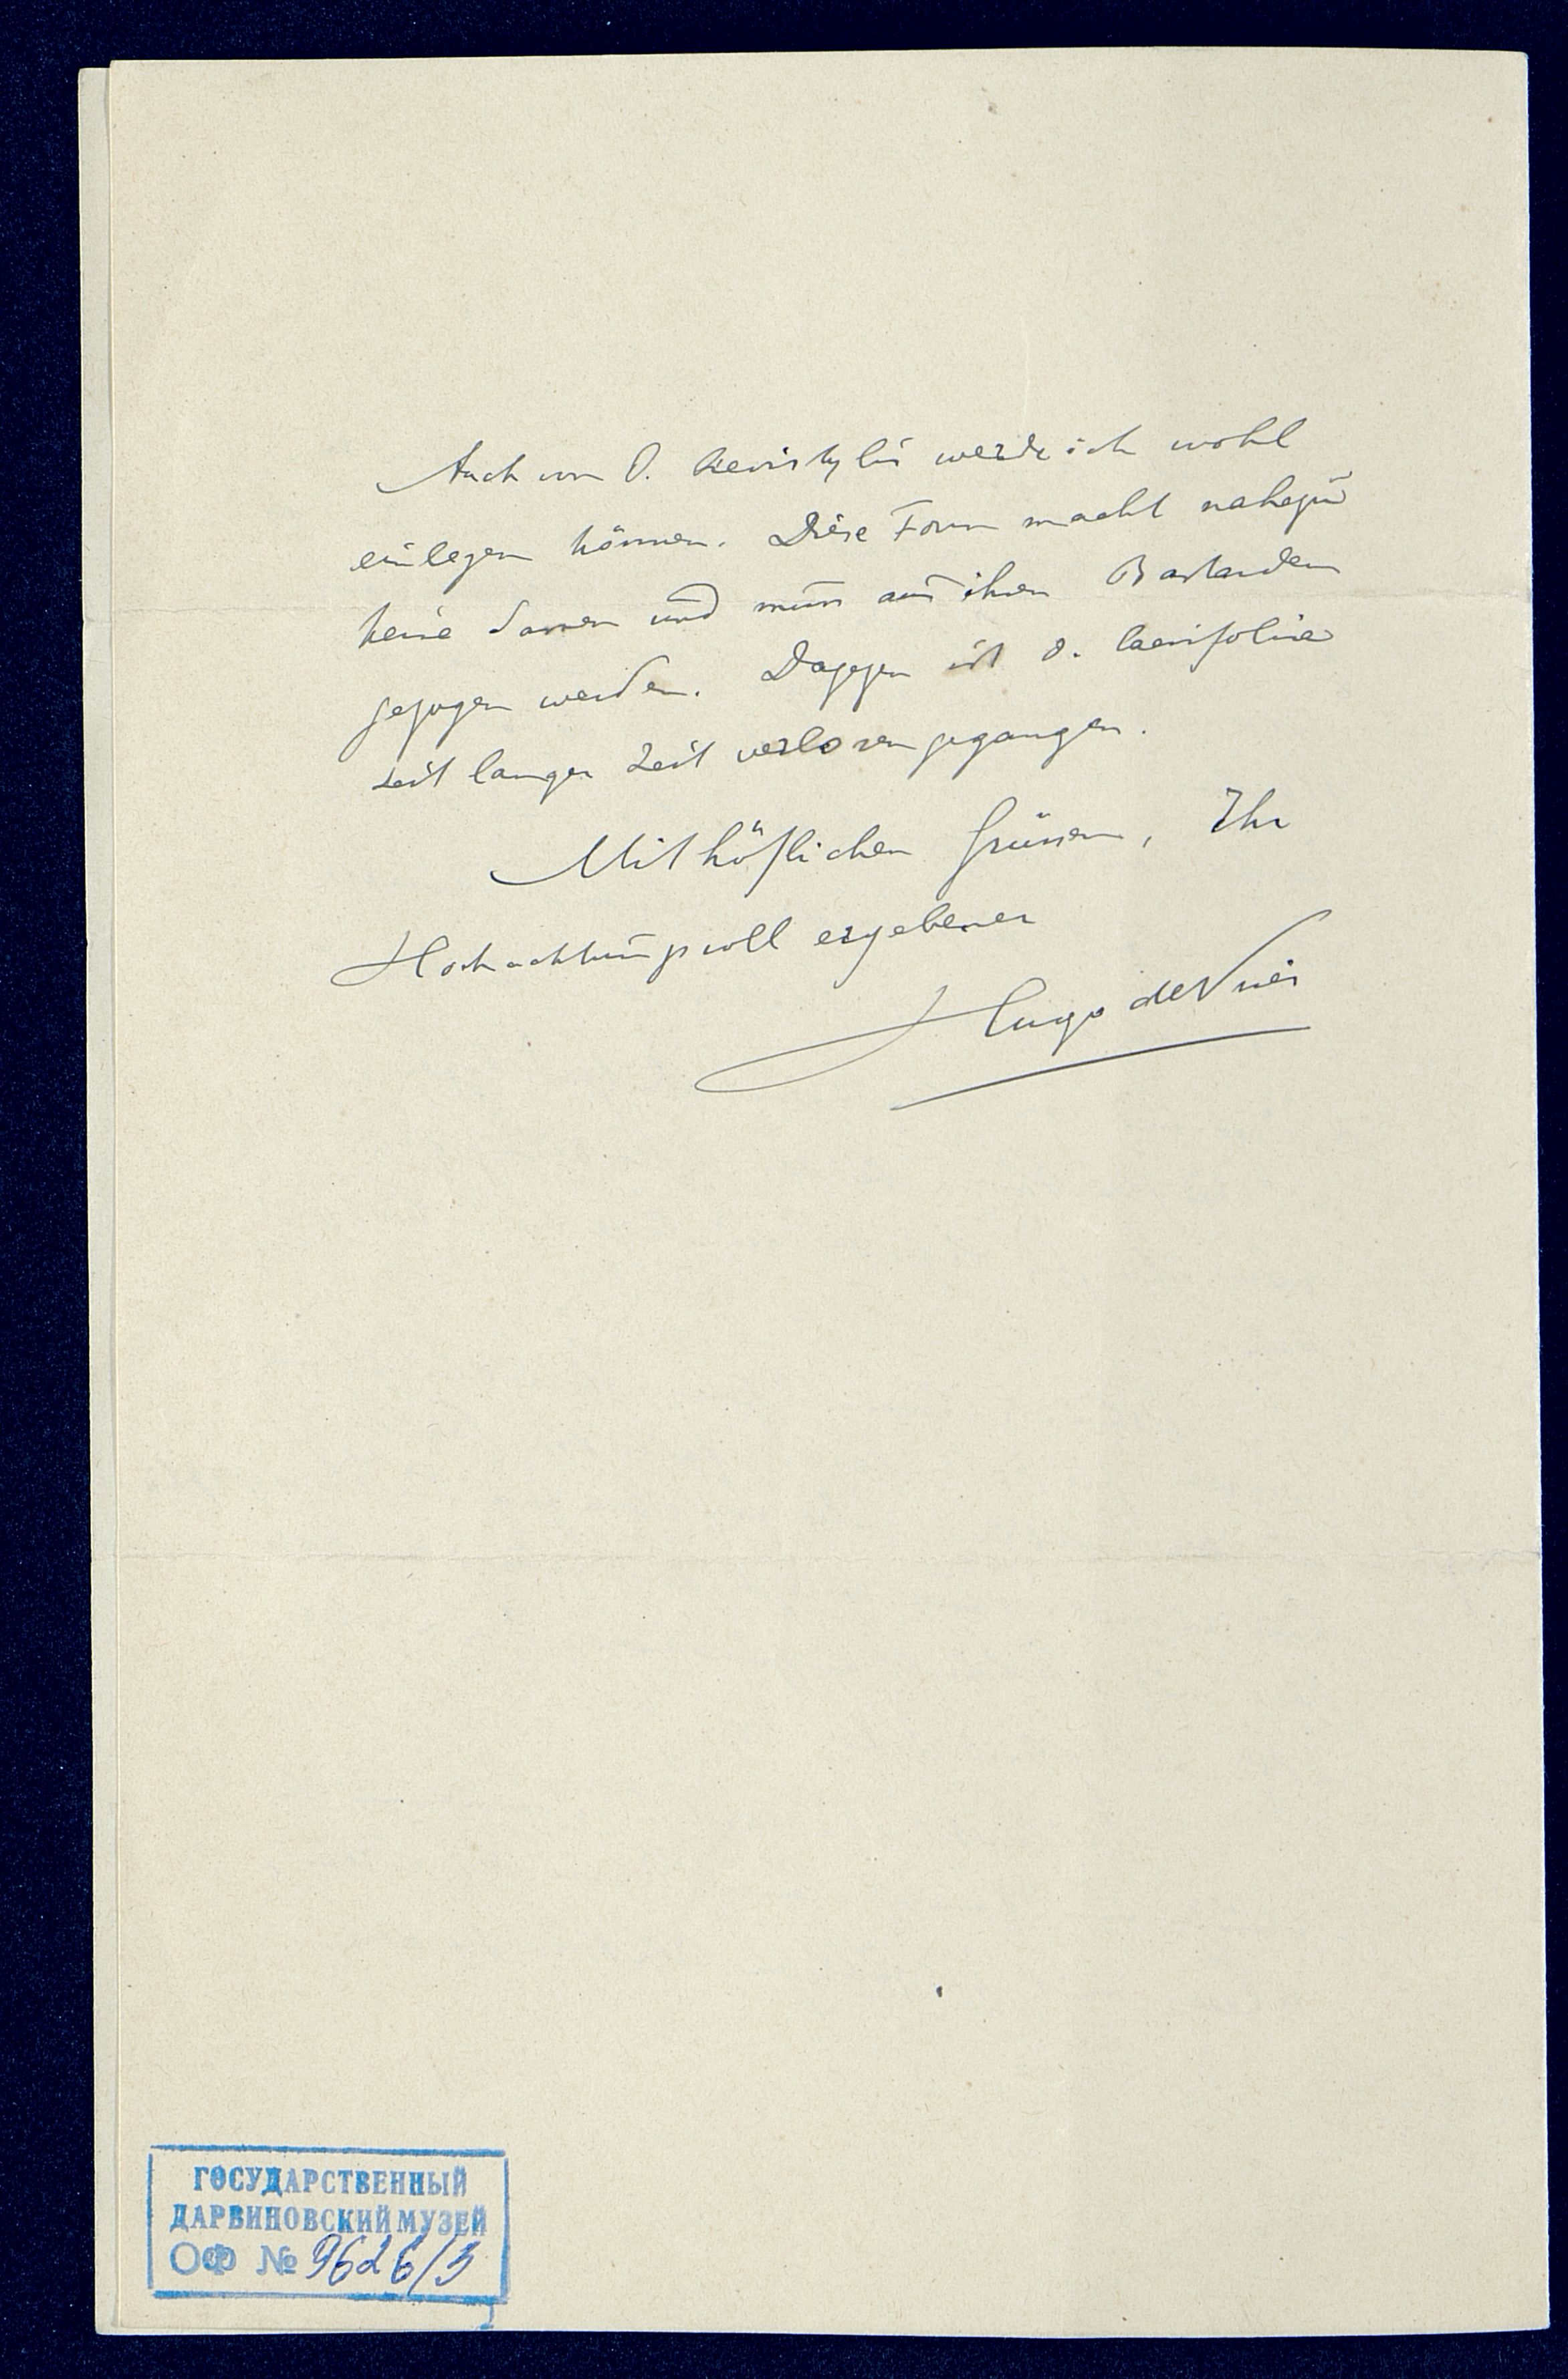 Auch von O. brevistylis werde ich wohl
einlegen können. Diese Form macht nahezu
keine Samen und muss aus ihren Bastarden
gezogen werden. Dagegen ist O. laevifolia
seit langer Zeit verloren gegangen.
Mit höflichen Grüssen, Ihr
Hochachtungsvoll ergebener
Hugo de Vries
ГОСУДАРСТВЕННЫЙ
ДАРВИНОВСКИЙ МУЗЕЙ
ОФ № 9626/3